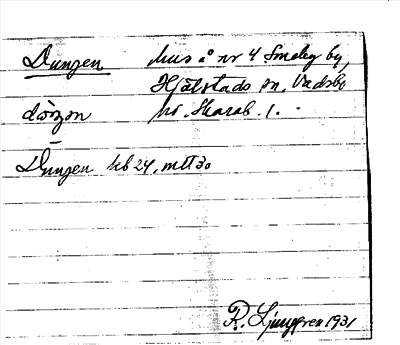 Dungen hus å nr 4 Smeby by,
Hjälstads sn. Vadsbo
hr. Skarab. l.
Dungen kb 24, mtl 30
R. Ljunggren 1931